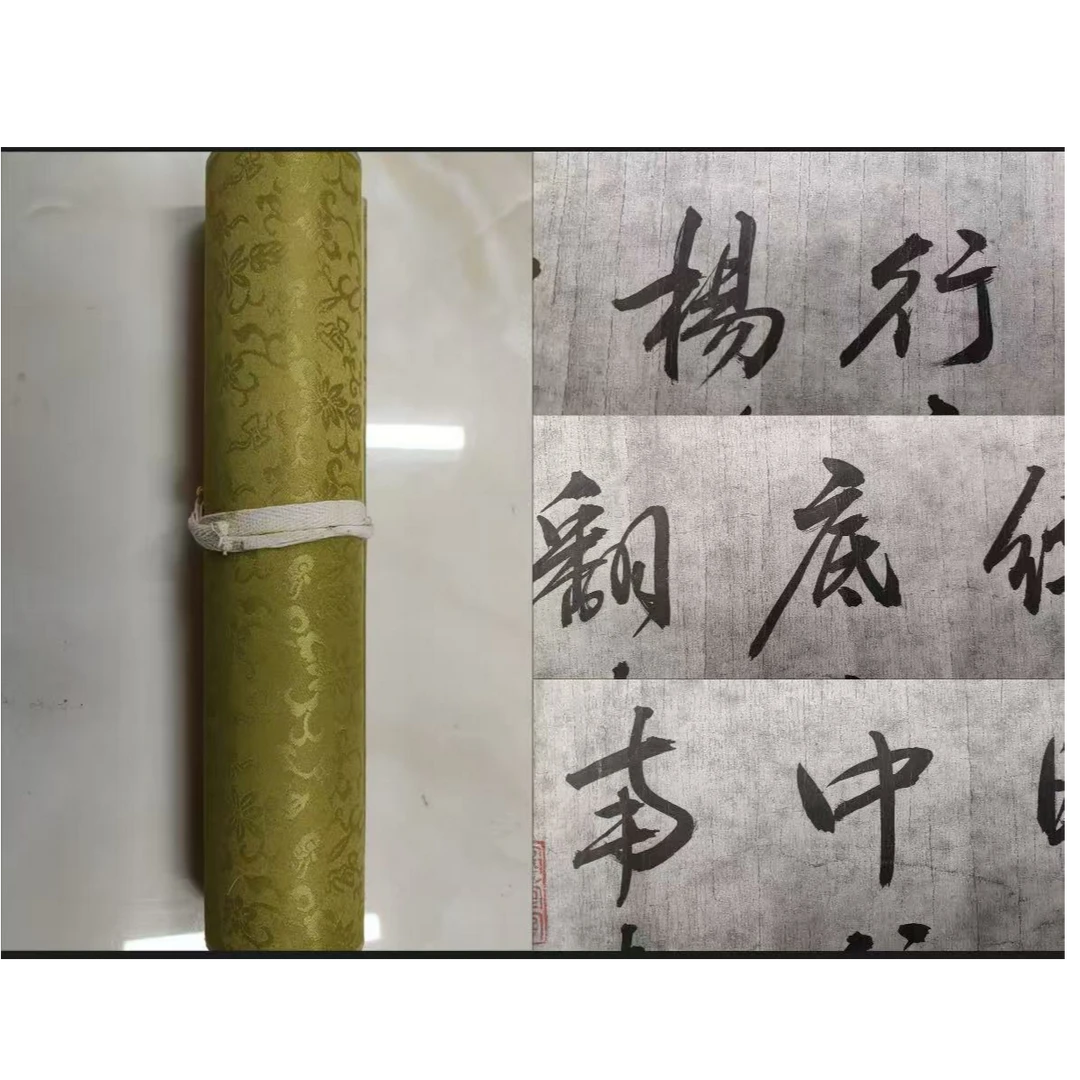 楊 行
翻 底
南 中